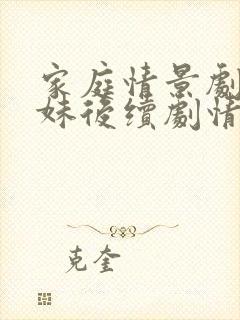 家庭情景劇
妹後續劇情
克奎